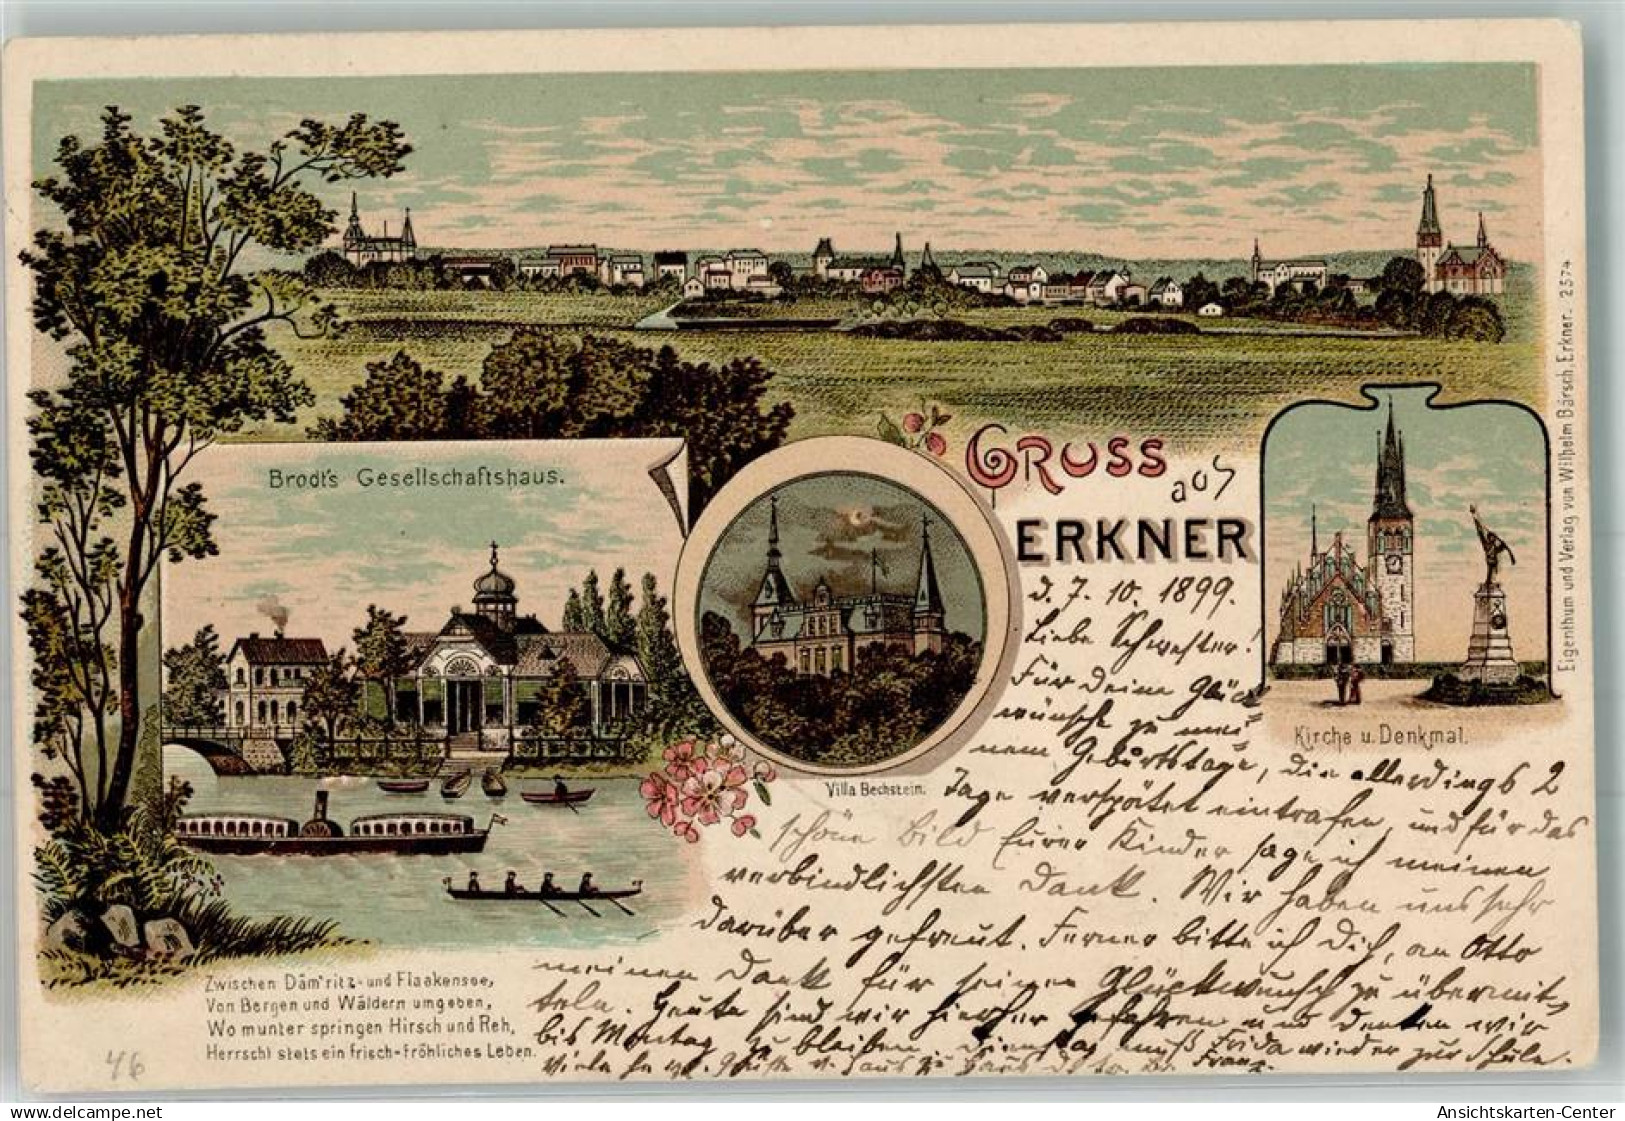 Brodt's Gesellschaftshaus.
GRUSS
aus
ERKNER
Villa Bechstein.
Kirche u. Denkmal.
Eigenthum und Verlag von Wilhelm Bärsch, Erkner. 2574
Zwischen Däm'ritz- und Flaakensee,
Von Bergen und Wäldern umgeben,
Wo munter springen Hirsch und Reh,
Herrscht stets ein frisch-fröhliches Leben.
46
d. 7. 10. 1899.
Liebe Schwester!
Für Deine Glück
wünsche zu mei
nem Geburtstage, die allerdings 2
Tage verspätet eintrafen, und für das
schöne Bild Eurer Kinder sage ich meinen
verbindlichsten Dank. Wir haben uns sehr
darüber gefreut. Ferner bitte ich Dich, an Otto
meinen Dank für seinen Glückwunsch zu übermit
teln. Heute sind wir hierher gefahren und denken wir
bis Montag zu bleiben. Dienstag muß Frida wieder zur Schule.
Viele Grüße v. Haus zu Haus Franz.
Ansichtskarten-Center